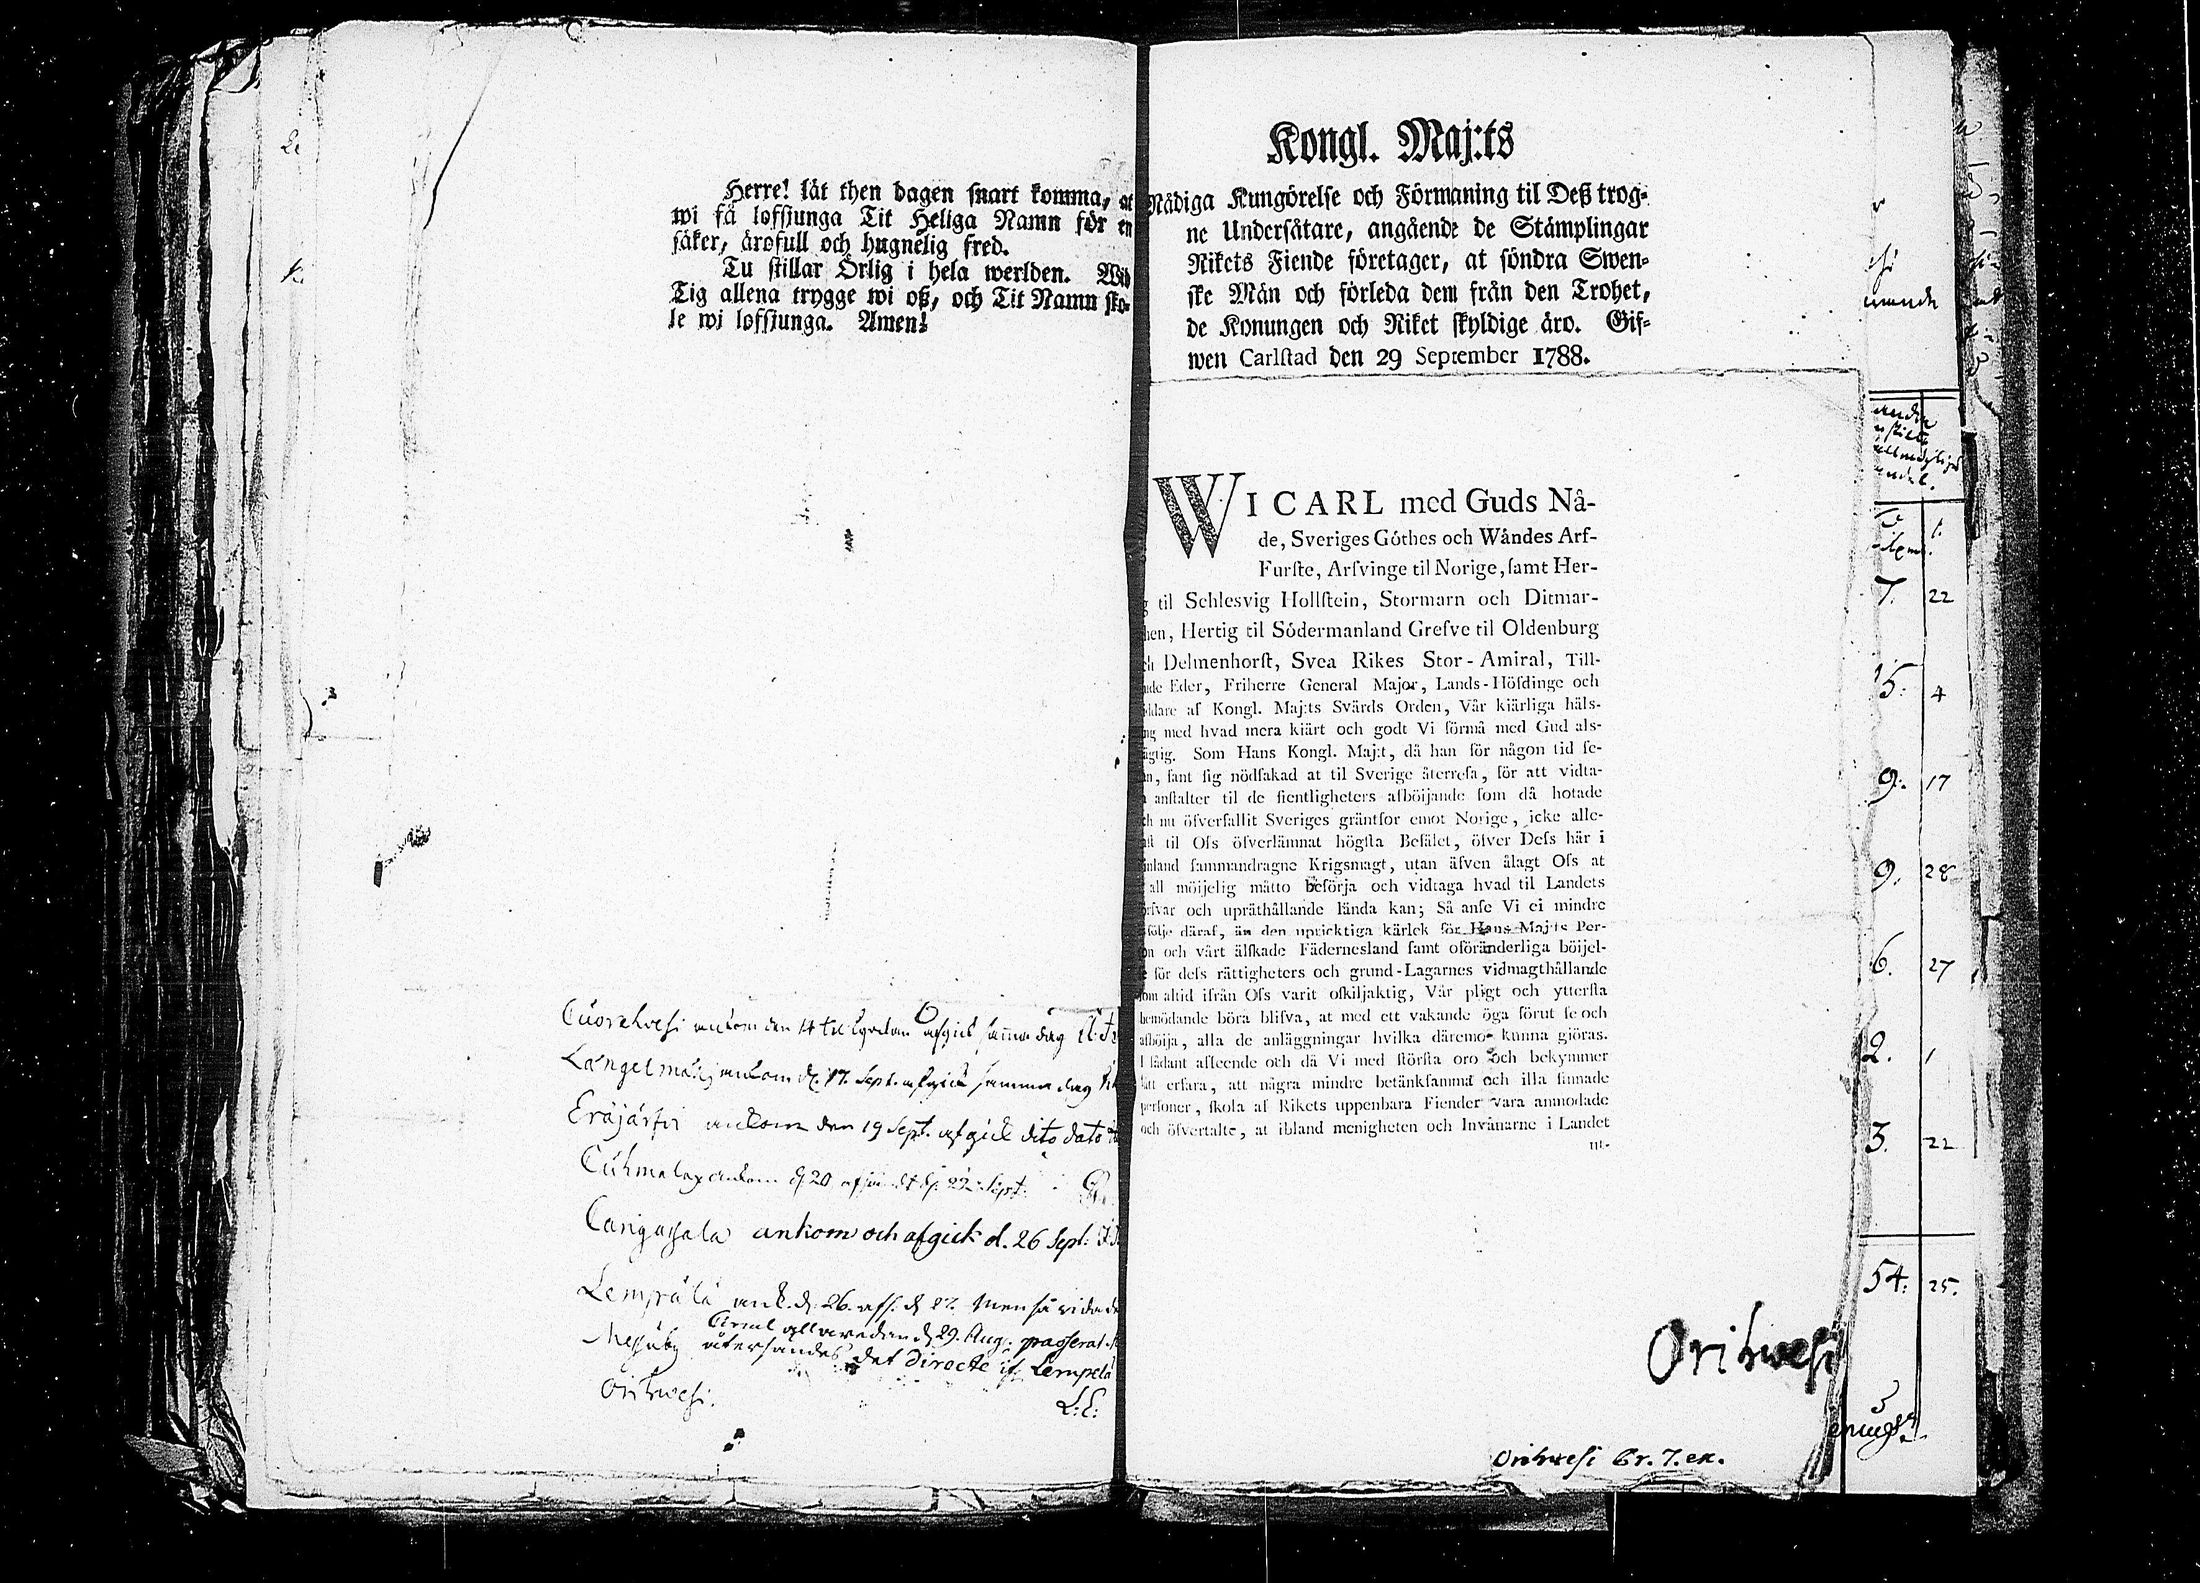 Herre! låt then dagen snart komma, at
wi få lofsiunga Tit Heliga Namn för en
säker, ärofull och hugnelig fred.
Tu stillar Örlig i hela werlden. Wid
Tig allena trygge wi oß, och Tit Namn sko-
le wi lofsiunga. Amen!
Cuorehvesi ankom den 14 afgick samma dag
Längelmäki ankom d. 17. Sept. afgick samma dag
Eräjärfvi ankom den 19 Sept. afgick dito dato
Cuhmalax ankom d. 20 d. 22 Sept.
Cangasala ankom och afgick d. 26 Sept:
Lempälä ank. d. 26. afg. d. 27. Men så vida
allaredan d. 29. Aug. passerat
Messuby återsandes det directe if. Lempelä
Orihwesi.
L: L:
Kongl. Maj:ts
Nådiga Kungörelse och Förmaning til Deß trog-
ne Undersåtare, angående de Stämplingar
Rikets Fiende företager, at söndra Swen-
ske Män och förleda dem från den Trohet,
de Konungen och Riket skyldige äro. Gif-
wen Carlstad den 29 September 1788.
WI CARL med Guds Nå-
de, Sveriges Göthes och Wändes Arf-
Furste, Arfvinge til Norige, samt Her-
g til Schlesvig Hollstein, Stormarn och Ditmar-
hen, Hertig til Södermanland Grefve til Oldenburg
ch Delmenhorst, Svea Rikes Stor-Amiral, Till-
nde Eder, Friherre General Major, Lands-Höfdinge och
ddare af Kongl. Maj:ts Svärds Orden, Vår kiärliga häls-
ng med hvad mera kiärt och godt Vi förmå med Gud als-
ägtig. Som Hans Kongl. Maj:t, då han för någon tid se-
n, fant sig nödsakad at til Sverige återresa, för att vidta-
a anstalter til de fientligheters afböijande som då hotade
ch nu öfverfallit Sveriges gräntsor emot Norige, icke alle-
ast til Oss öfverlämnat högsta Befälet, öfver Dess här i
inland sammandragne Krigsmagt, utan äfven ålagt Oss at
all möijelig måtto besörja och vidtaga hvad til Landets
örsvar och upräthållande lända kan; Så anse Vi ei mindre
följe däraf, än den upricktiga kärlek för Hans Maj:ts Per-
on och vårt älskade Fädernesland samt oföränderliga böijel-
e för dess rättigheters och grund-Lagarnes vidmagthållande
som altid ifrån Oss varit oskiljaktig, Vår pligt och yttersta
bemödande böra blifva, at med ett vakande öga förut se och
afböija, alla de anläggningar hvilka däremot kunna giöras.
I sådant afseende och då Vi med största oro och bekymmer
fått erfara, att några mindre betänksamma och illa sinnade
personer, skola af Rikets uppenbara Fiender vara anmodade
och öfvertalte, at ibland menigheten och Invånarne i Landet
ut-
Orihwesi
Orihwesi Br. 7. ex.
7. 22
15: 4
9. 17
9. 28
6. 27
2. 1
3. 22
54: 25.